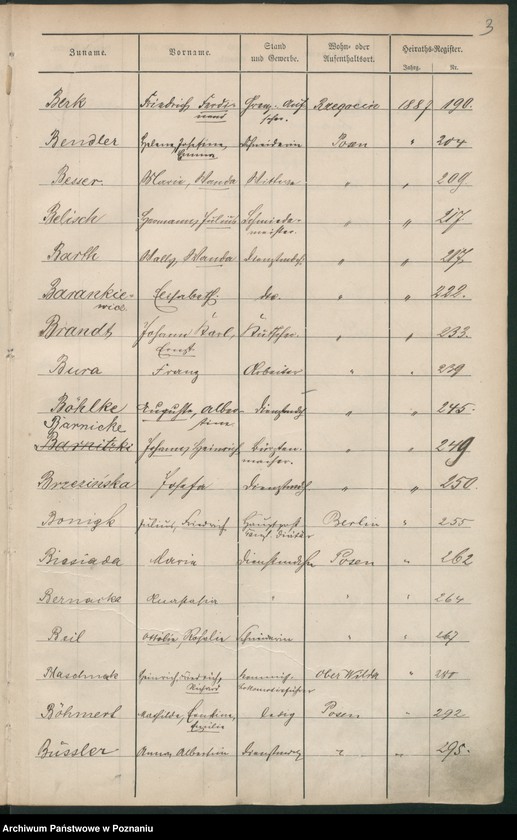 3
Zuname. Vorname. Stand und Gewerbe. Wohn- oder Aufenthaltsort. Heiraths-Register.
Jahrg. Nr.
Berk Friedrich Ferdi-nand 1887 190.
Bendler Helene, Josefine, Emma Schneiderin Posen " 204
Besser. Marie, Wanda Wittwe " " 209.
Belisch Hermann, Julius Schmiede-meister. " " 217.
Barth Wally, Wanda Dienstmdch. " " 217.
Barankie-wicz Elisabeth. do. " " 222.
Brandt Johann Karl, Ernst. Kutscher " " 233.
Bura Franz Arbeiter " " 239
Böhlke Auguste, Alber-tine Dienstmdch " " 245.
Barnicke
Barnitzki Johann, Heinrich Bürsten-macher. " " 249.
Brzesińska Josefa Dienstmdch " " 250.
Bonigk Julius, Friedrich Berlin " 255
Biesiada Maria Dienstmdch Posen " 262
Bernacka Anastasia " " " 264
Beil Ottilie, Rosalie Schneiderin " " 267
Heinrich, Friedrich, Richard Ober Wilda "
Böhmert Mathilde, Emilie Posen " 292
Büssler Anna, Albertine Dienstmdch " " 295.
Archiwum Państwowe w Poznaniu